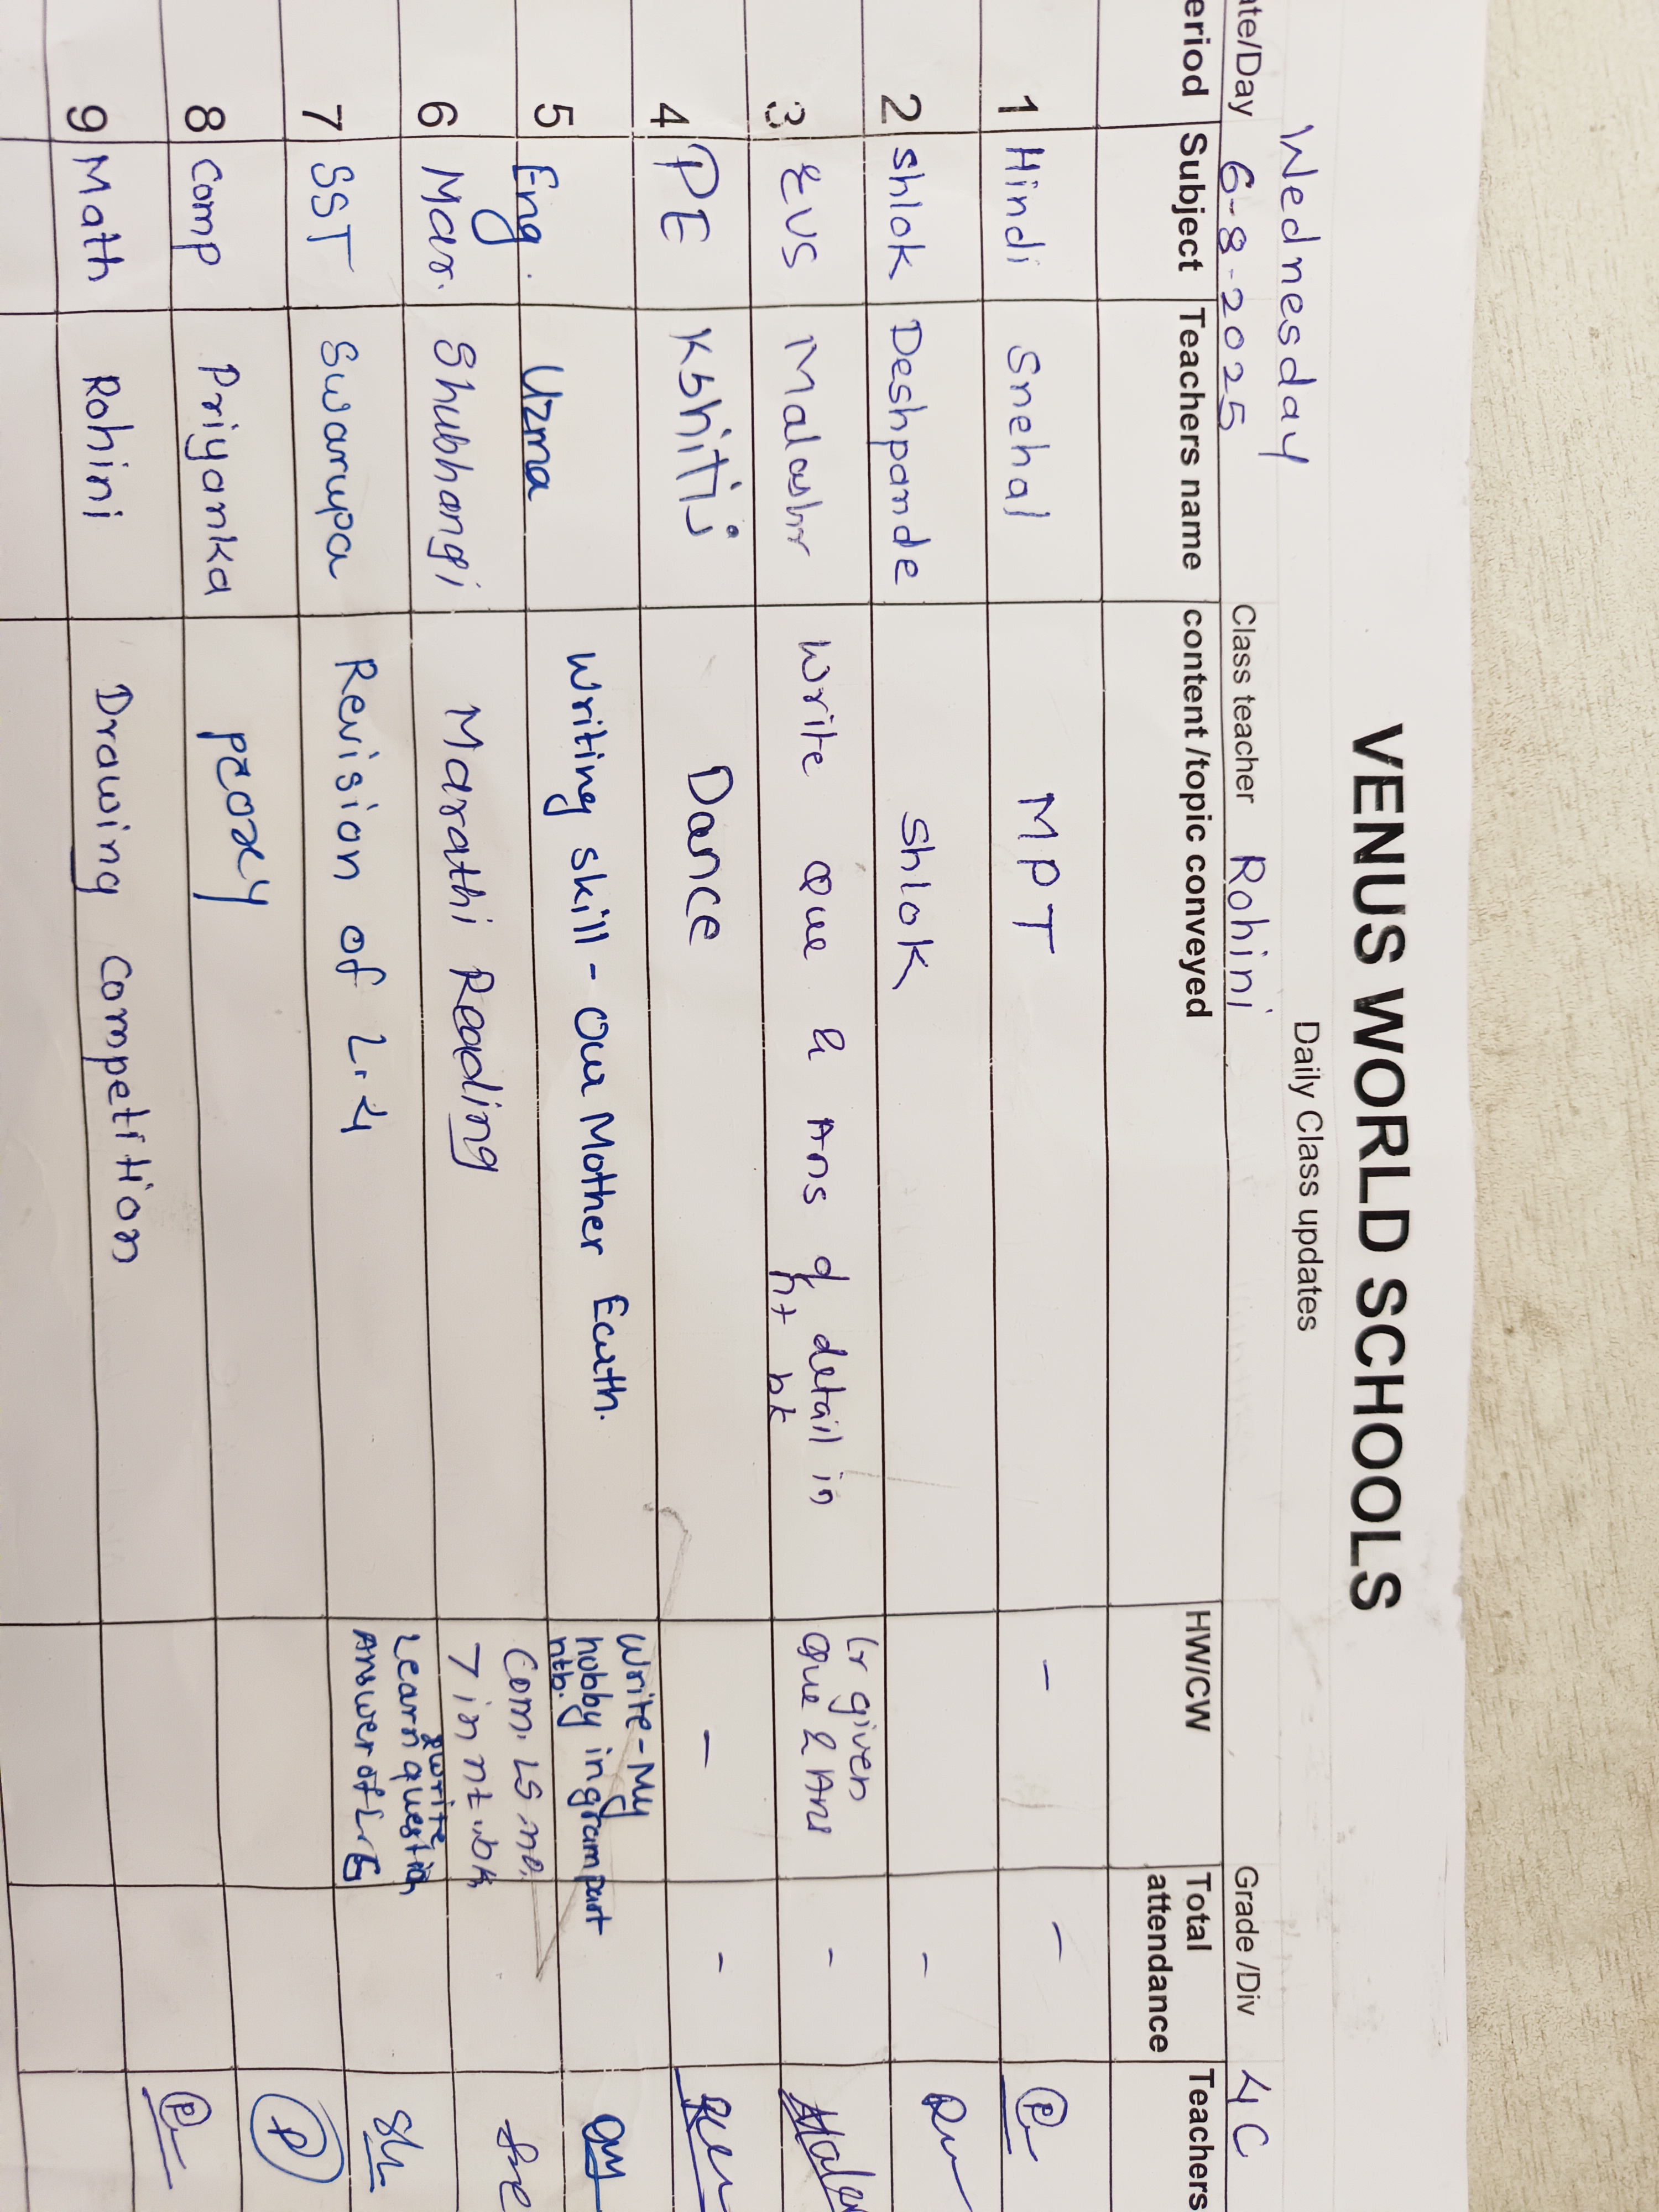 VENUS WORLD SCHOOLS
Daily Class updates
Wednesday
ate/Day 6-8-2025 Class teacher Rohini Grade /Div 4C
eriod Subject Teachers name content /topic conveyed HW/CW Total attendance Teachers
1 Hindi Snehal MPT - -
2 shlok Deshpande shlok -
3 EVS Malashr Write Que & Ans of detail in Lr given -
nt bk Que & Ans
4 PE Kshitij Dance - -
5 Eng. Uzma Writing skill - Our Mother Earth. Write - My
hobby in gram part
ntb.
6 Mar. Shubhangi Marathi Reading Com. LS no.
7 in nt wbk
7 SST Swarupa Revision of L.4 Learn question
& write
Answer of L-5
8 Comp Priyanka proxy
9 Math Rohini Drawing Competition